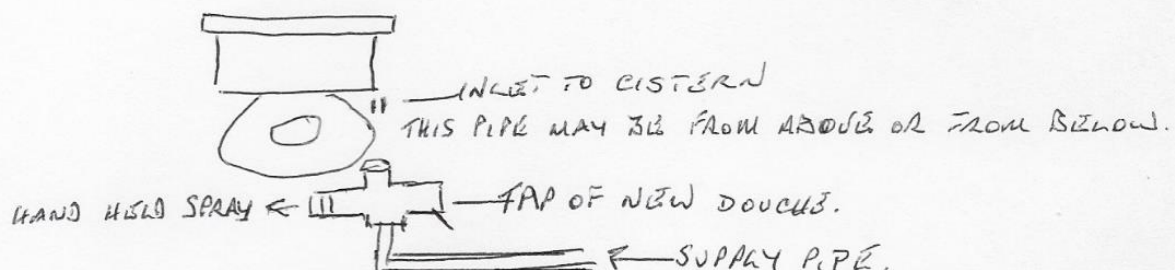 INLET TO CISTERN
THIS PIPE MAY BE FROM ABOVE OR FROM BELOW.
HAND HELD SPRAY
TAP OF NEW DOUCHE.
SUPPLY PIPE.